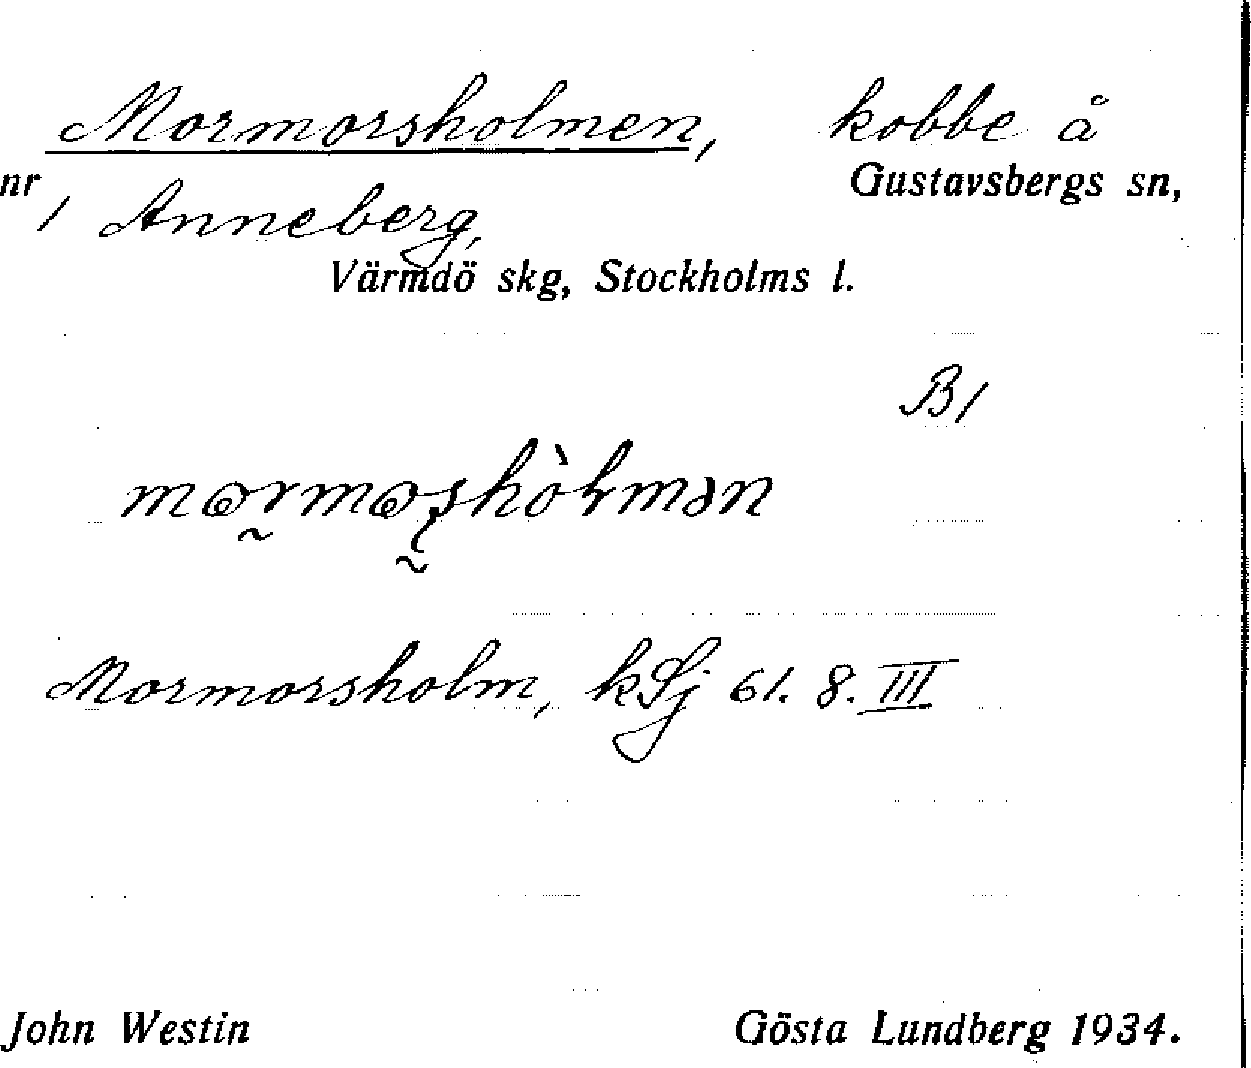 Mormorsholmen, kobbe å
nr 1 Anneberg, Gustavsbergs sn,
Värmdö skg, Stockholms l.
B1
Mormorsholm, kSj 61. 8. III
John Westin Gösta Lundberg 1934.